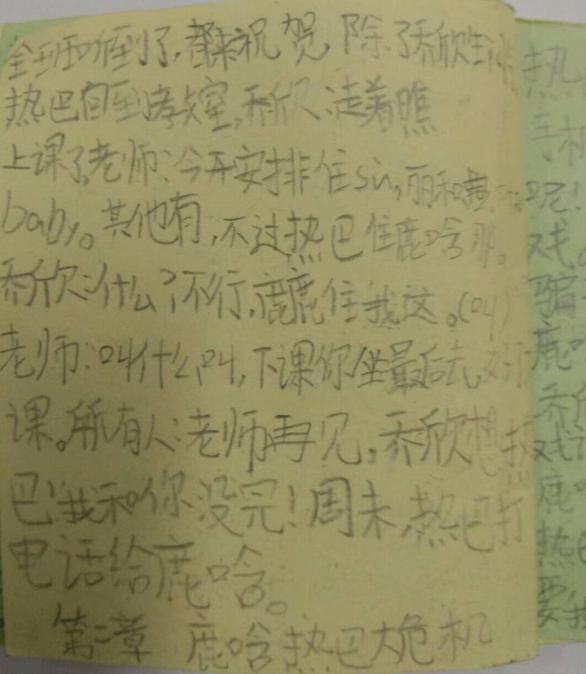 全班听到了,都来祝贺,除了乔欣生
热巴回到教室,乔欣:走着瞧
上课了,老师:今天安排住sù,丽和黄
baby。其他有,不过热巴住鹿晗那。
乔欣:什么?不行,鹿鹿住我这。(叫)
老师:叫什么叫,下课你坐最后去,
课。所有人:老师再见,乔欣想:热
巴!我和你没完!周末,热巴打
电话给鹿晗。
第二章 鹿晗热巴大危机
热
手机
呢!
戏。
骗
鹿
乔
戏
鹿
热
要